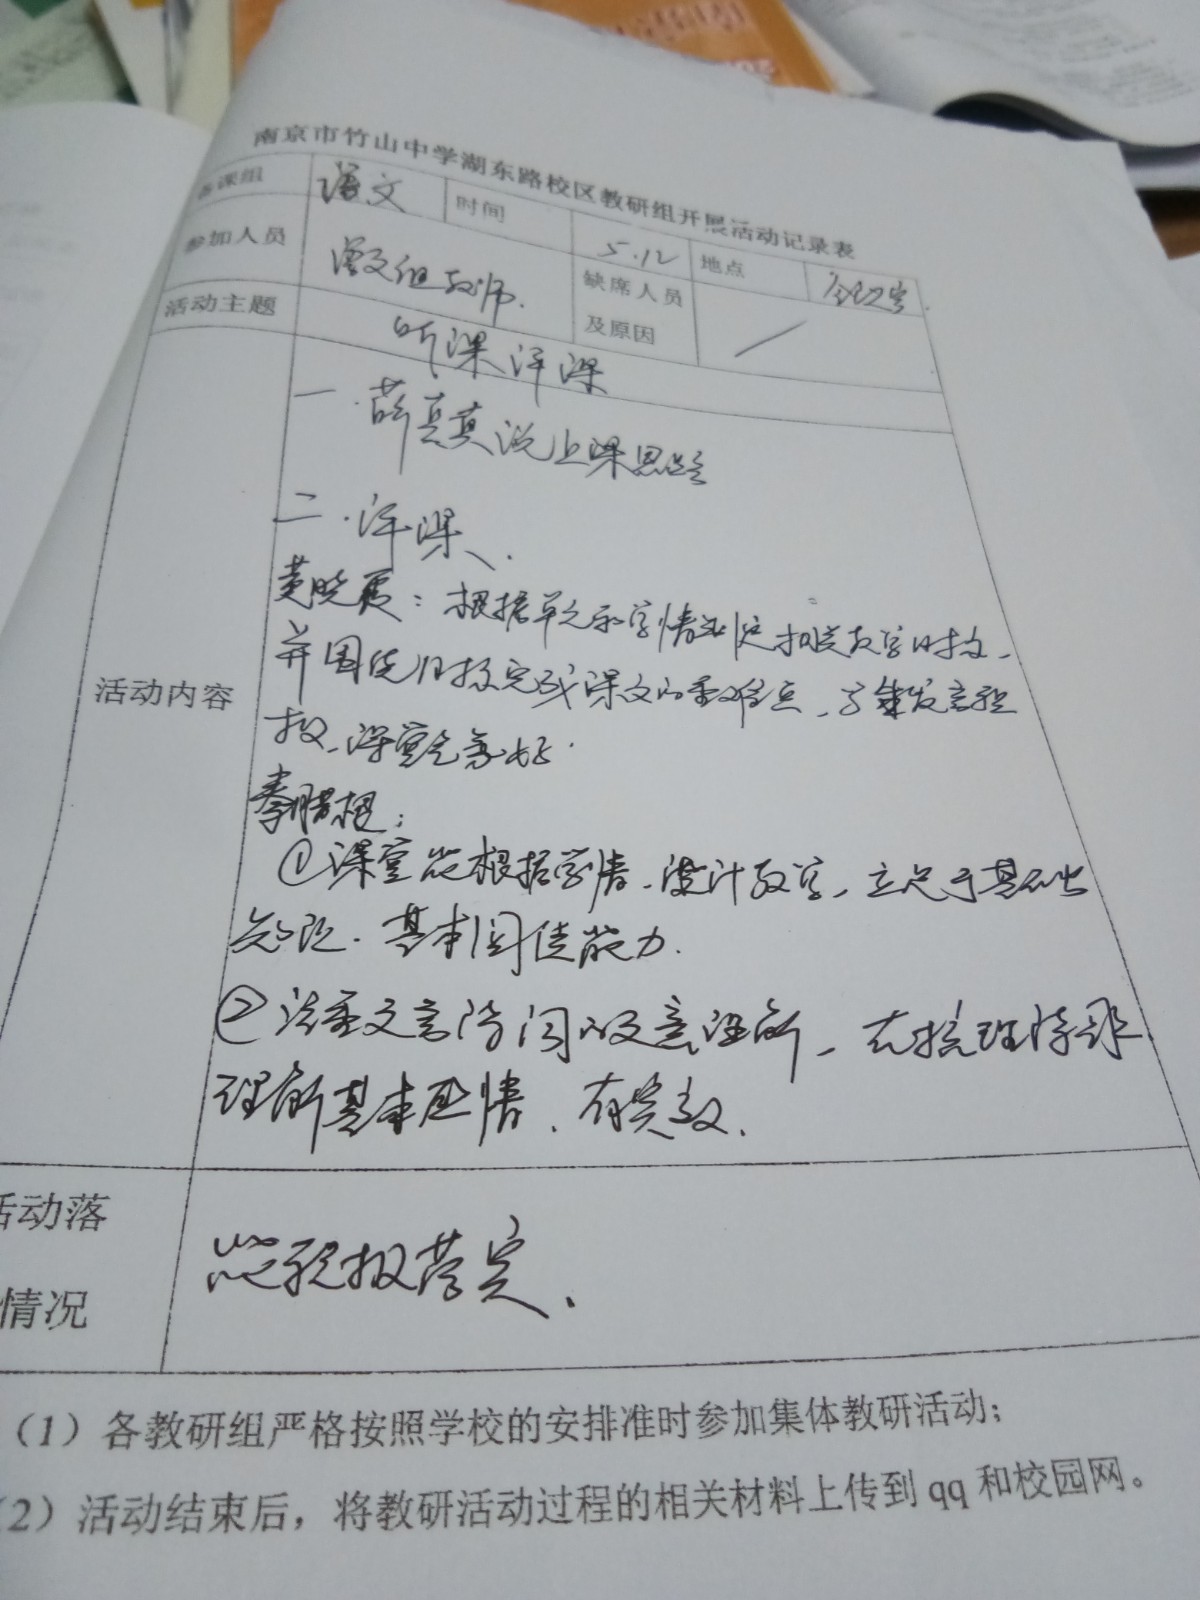 南京市竹山中学湖东路校区教研组开展活动记录表
备课组 语文 时间 5.12 地点 会议室
参加人员 语文组教师. 缺席人员及原因 /
活动主题 听课评课
活动内容
一.薛真真说上课思路
二.评课.
黄晓霞:根据单元和学情制定相关教学目标,
并围绕目标完成课文的重难点,学生发言积
极,课堂完善好.
秦腊根:
①课堂能根据学情,设计教学,立足于基础
知识.基本阅读能力.
②注重文言 理解,在梳理
理解基本 情,有实效.
活动落
情况
能积极落实.
(1)各教研组严格按照学校的安排准时参加集体教研活动;
(2)活动结束后,将教研活动过程的相关材料上传到 qq 和校园网。